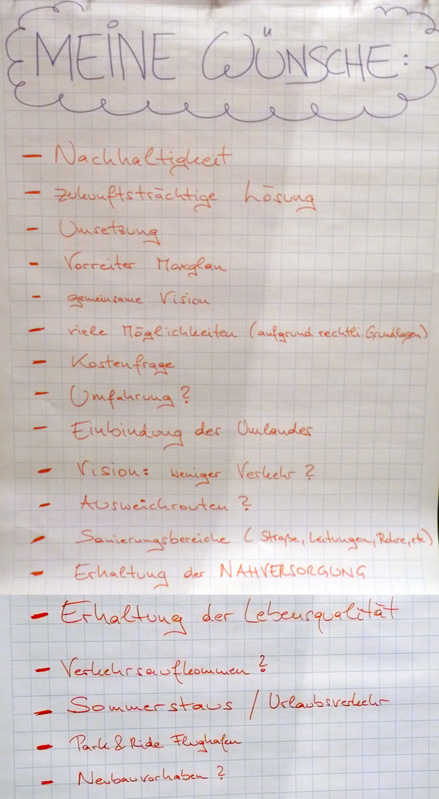 MEINE WÜNSCHE:
- Nachhaltigkeit
- zukunftsträchtige Lösung
- Umsetzung
- Vorreiter Maxglan
- gemeinsame Vision
- viele Möglichkeiten (aufgrund rechtli. Grundlagen)
- Kostenfrage
- Umfahrung?
- Einbindung des Umlandes
- Vision: weniger Verkehr?
- Ausweichrouten?
- Sanierungsbereiche (Straße, Leitungen, Rohre, etc)
- Erhaltung der NAHVERSORGUNG
- Erhaltung der Lebensqualität
- Verkehrsaufkommen?
- Sommerstaus / Urlaubsverkehr
- Park & Ride Flughafen
- Neubauvorhaben?